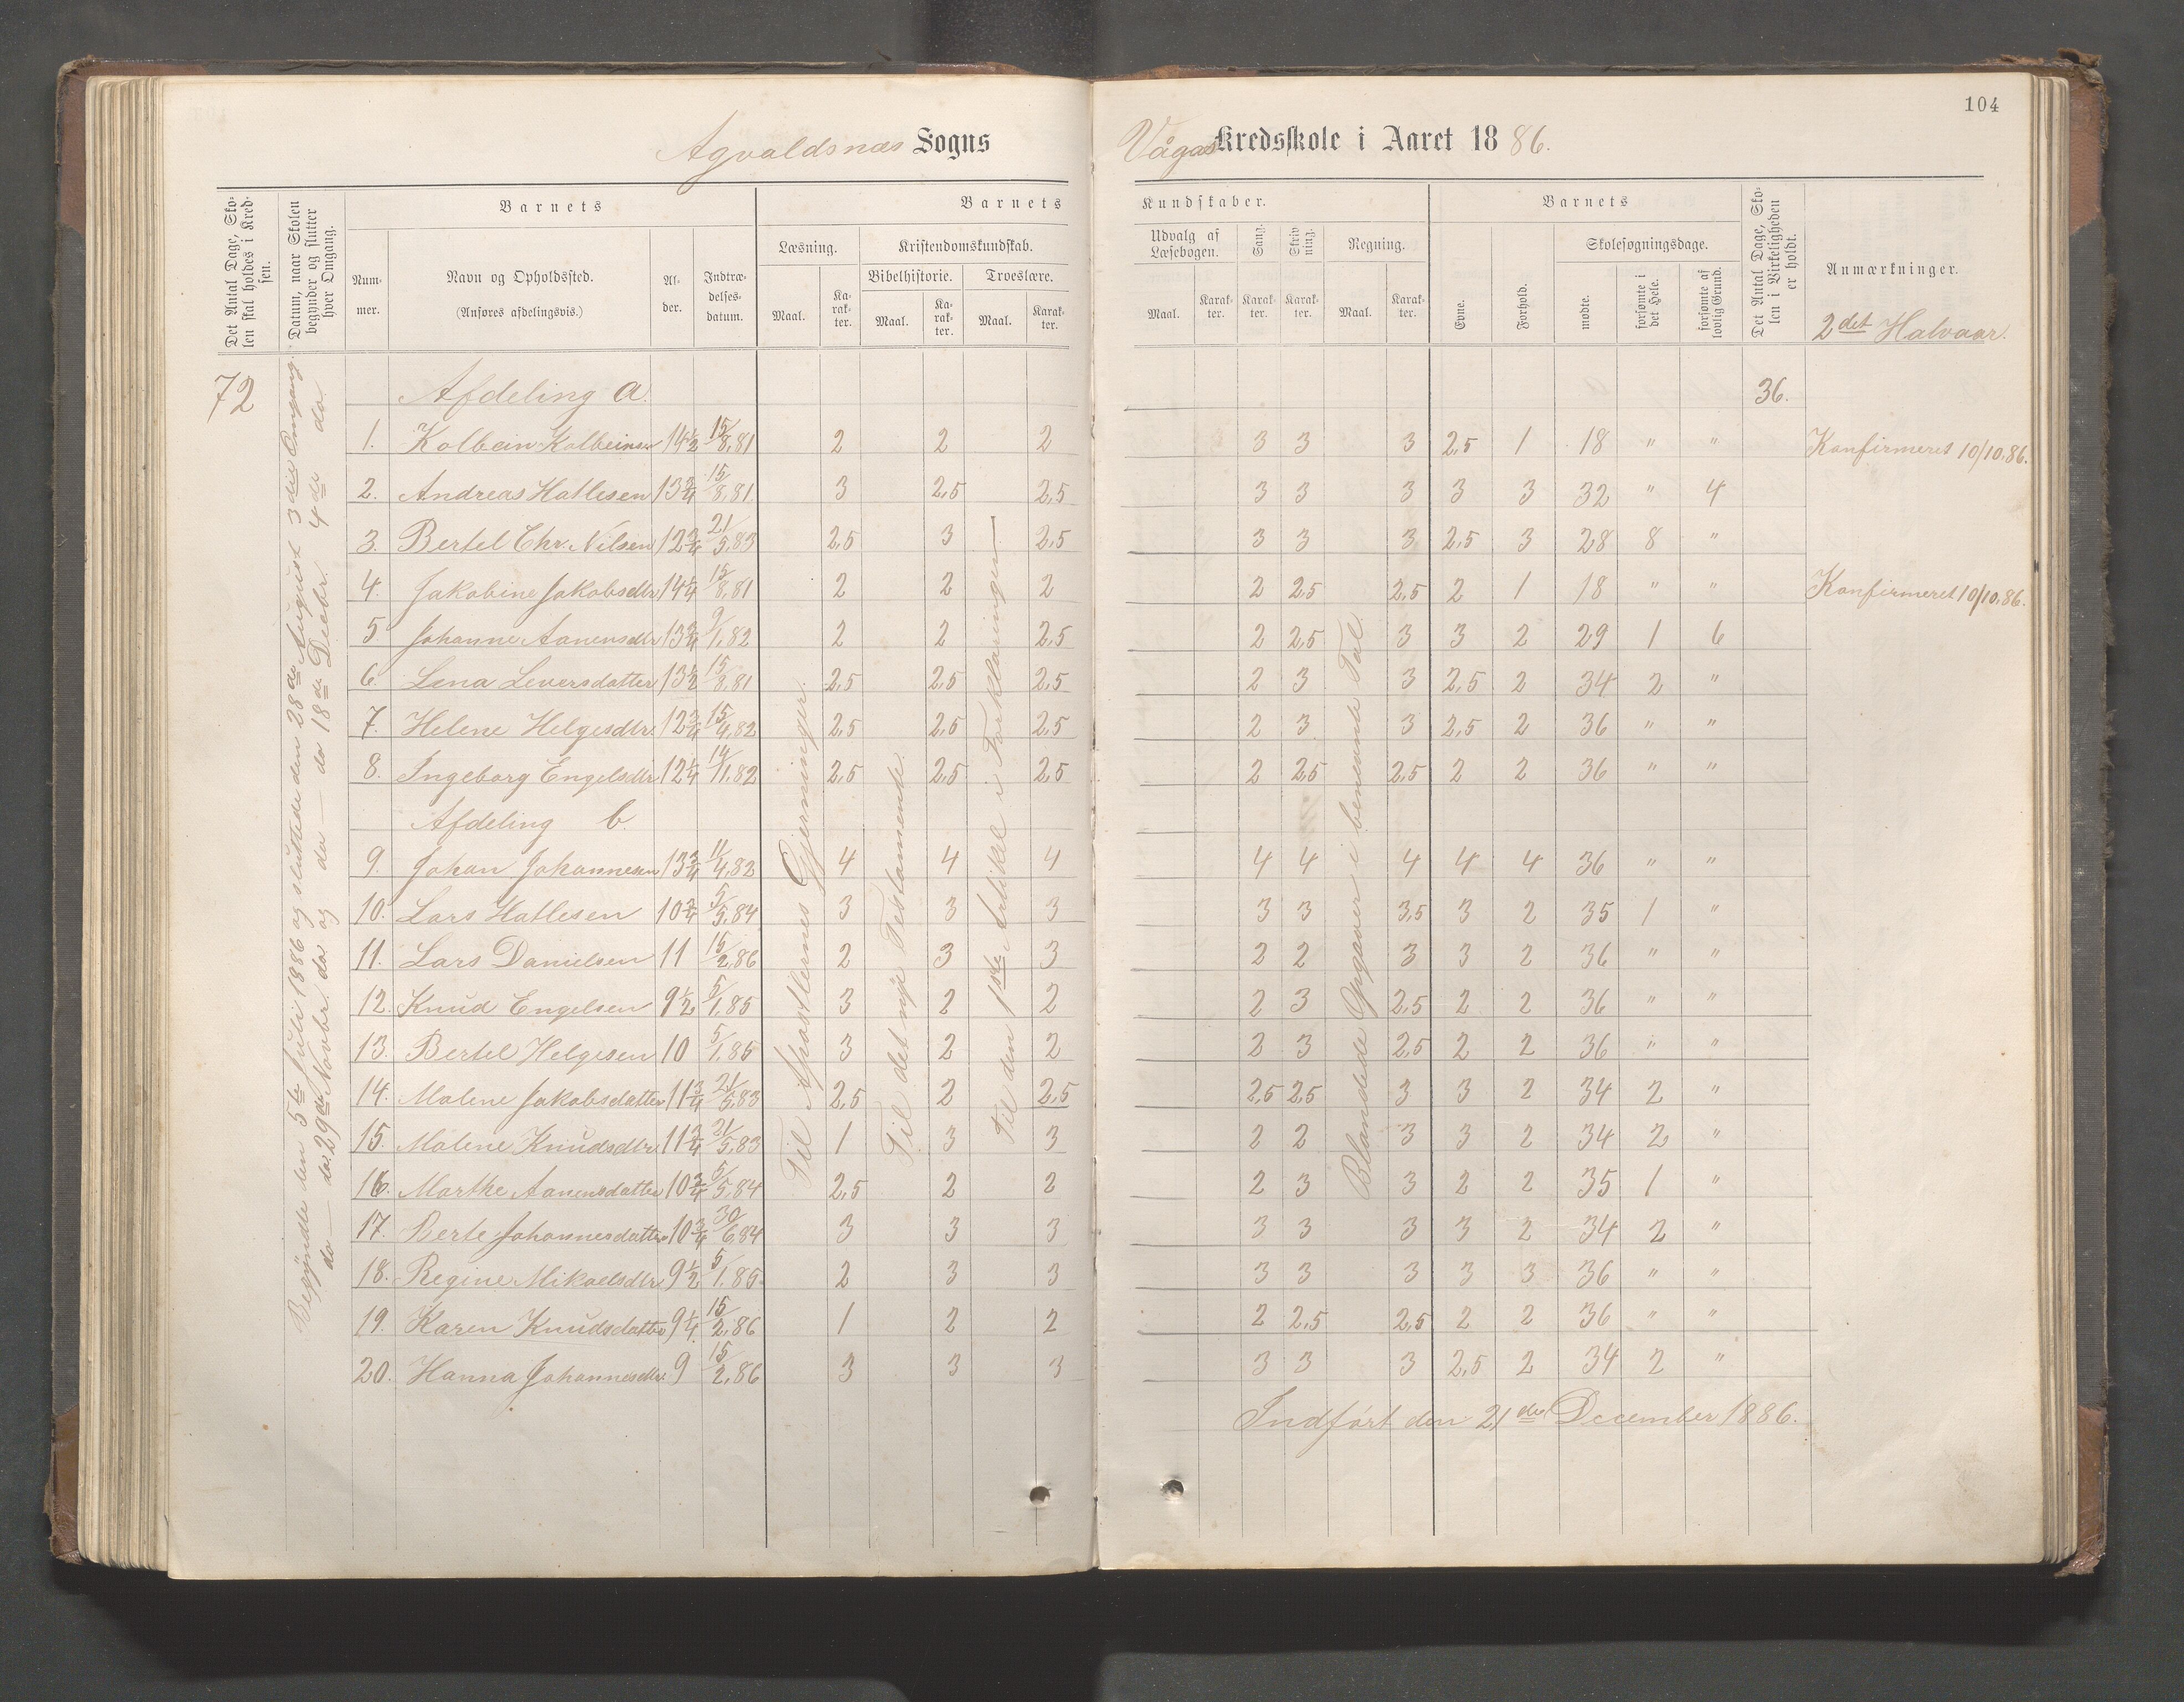 104
Agvaldsnæs Sogns
Vågas Kredsskole i Aaret 1886.
Det Antal Dage, Skolen skal holdes i Kredsen.
Datum, naar Skolen begynder og slutter hver Omgang.
Barnets
Barnets
Kundskaber.
Barnets
Det Antal Dage, Skolen i Virkeligheden er holdt.
Anmærkninger.
Nummer.
Navn og Opholdssted.
(Anføres afdelingsvis.)
Alder.
Indtrædelsesdatum.
Læsning.
Kristendomskundskab.
Bibelhistorie.
Troeslære.
Maal.
Karakter.
Maal.
Karakter.
Maal.
Karakter.
Udvalg af Læsebogen.
Sang.
Skrivning.
Regning.
Maal.
Karakter.
Karakter.
Karakter.
Maal.
Karakter.
Evne.
Forhold.
Skolesøgningsdage.
mødte.
forsømte i det Hele.
forsømte af lovlig Grund.
2det Halvaar.
72
Begyndte den 5te Juli 1886 og sluttede den 28de August 3die Omgang.
do — do. 29de Novbr. do og do — do 18de Decbr. 4de do
Til Apostlernes Gjerninger.
Til det nye Testamente.
Til den 1ste Artikel i Forklaringen
Blandede Opgaver i benevnte Tal.
Afdeling a. 36.
1. Kolbein Kolbeinsen 14½ 15/8,81 2 2 2 3 3 3 2,5 1 18 " " Konfirmeret 10/10,86.
2. Andreas Hatlesen 13¾ 15/8,81 3 2,5 2,5 3 3 3 3 3 32 " 4
3. Bertel Chr. Nilsen 12¾ 21/5,83 2,5 3 2,5 3 3 3 2,5 3 28 8 "
4. Jakobine Jakobsdtr 14¼ 15/8,81 2 2 2 2 2,5 2,5 2 1 18 " " Konfirmeret 10/10,86.
5 Johanne Aanensdtr 13¾ 9/1,82 2 2 2,5 2 2,5 3 3 2 29 1 6
6. Lena Leversdatter 13½ 15/8,81 2,5 2,5 2,5 2 3 3 2,5 2 34 2 "
7. Helene Helgesdtr. 12¾ 15/4,82 2,5 2,5 2,5 2 3 3 2,5 2 36 " "
8. Ingeborg Engelsdtr 12¼ 14/11,82 2,5 2,5 2,5 2 2,5 2,5 2 2 36 " "
Afdeling b.
9. Johan Johannesen 13¾ 11/4,82 4 4 4 4 4 4 4 4 36 " "
10. Lars Hatlesen 10¾ 5/5,84 3 3 3 3 3 3,5 3 2 35 1 "
11. Lars Danielsen 11 15/2,86 2 3 3 2 2 3 3 2 36 " "
12. Knud Engelsen 9½ 5/1,85 3 2 2 2 3 2,5 2 2 36 " "
13. Bertel Helgesen 10 5/1,85 3 2 2 2 3 2,5 2 2 36 " "
14. Malene Jakobsdatter 11¾ 21/5,83 2,5 2 2,5 2,5 2,5 3 3 2 34 2 "
15. Malene Knudsdtr. 11¾ 21/5,83 1 3 3 2 2 3 3 2 34 2 "
16. Marthe Aanensdatter 10¾ 5/5,84 2,5 2 2 2 3 3 2 2 35 1 "
17. Berte Johannesdatter 10¾ 30/6,84 3 3 3 3 3 3 3 2 34 2 "
18. Regine Mikaelsdtr. 9½ 5/1,85 2 3 3 3 3 3 3 3 36 " "
19. Karen Knudsdatter 9¼ 15/2,86 1 2 2 2 2,5 2,5 2 2 36 " "
20. Hanna Johannesdtr. 9 15/2,86 3 3 3 3 3 3 2,5 2 34 2 "
Indført den 21de December 1886.